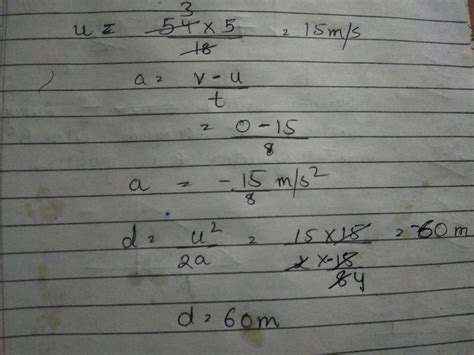 u = 54 × 5 / 18 3 = 15 m/s
a = v - u / t
= 0 - 15 / 8
a = - 15 / 8 m/s²
d = u² / 2a = 15 × 15 / 2 × -15 / 8 4 = -60 m
d = 60m